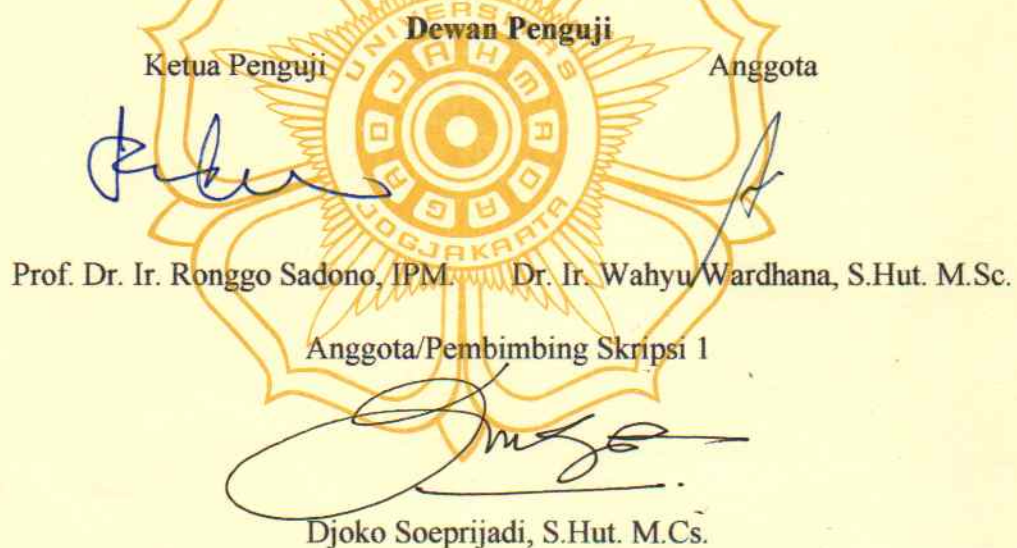 Dewan Penguji
Ketua Penguji Anggota
UNIVERSITAS GADJAH MADA
JOGJAKARTA
Prof. Dr. Ir. Ronggo Sadono, IPM. Dr. Ir. Wahyu Wardhana, S.Hut. M.Sc.
Anggota/Pembimbing Skripsi 1
Djoko Soeprijadi, S.Hut. M.Cs.